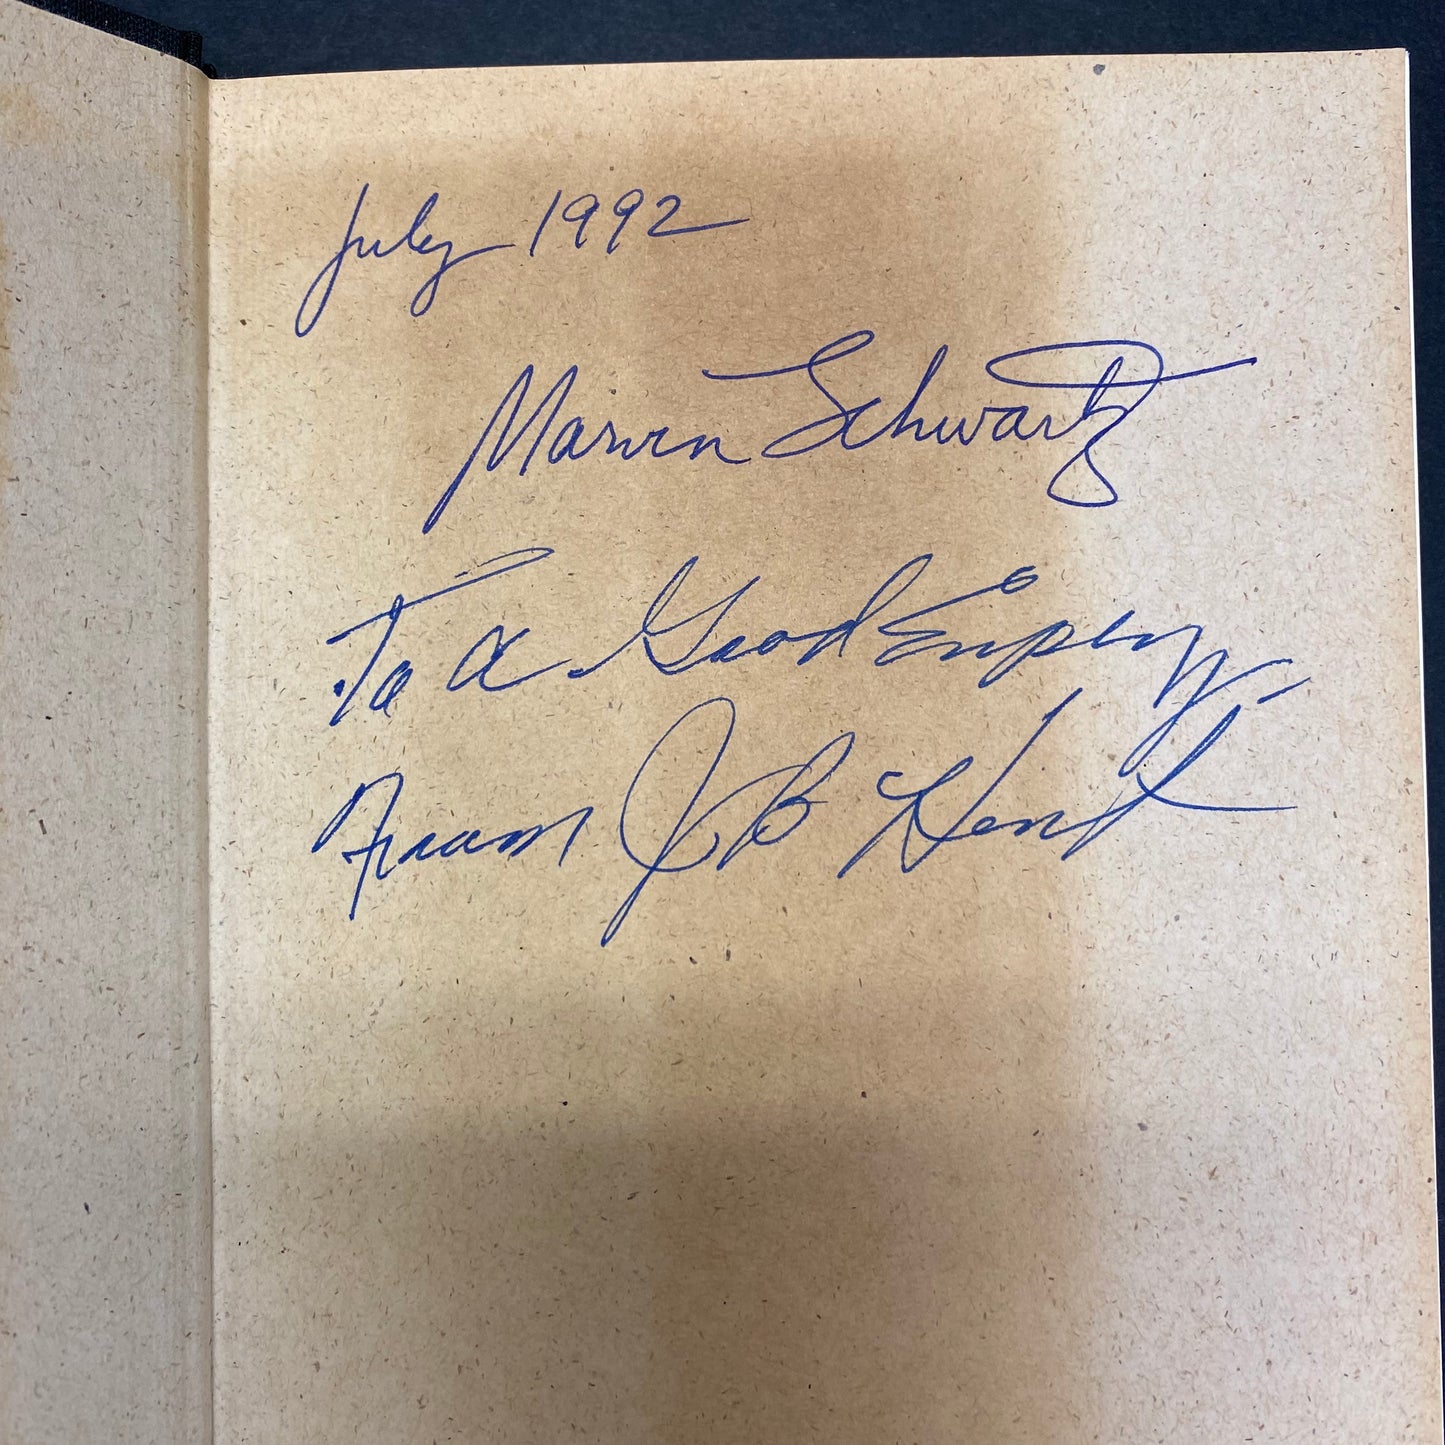 July 1992
Marvin Schwartz
To a Good
From J B Hunt